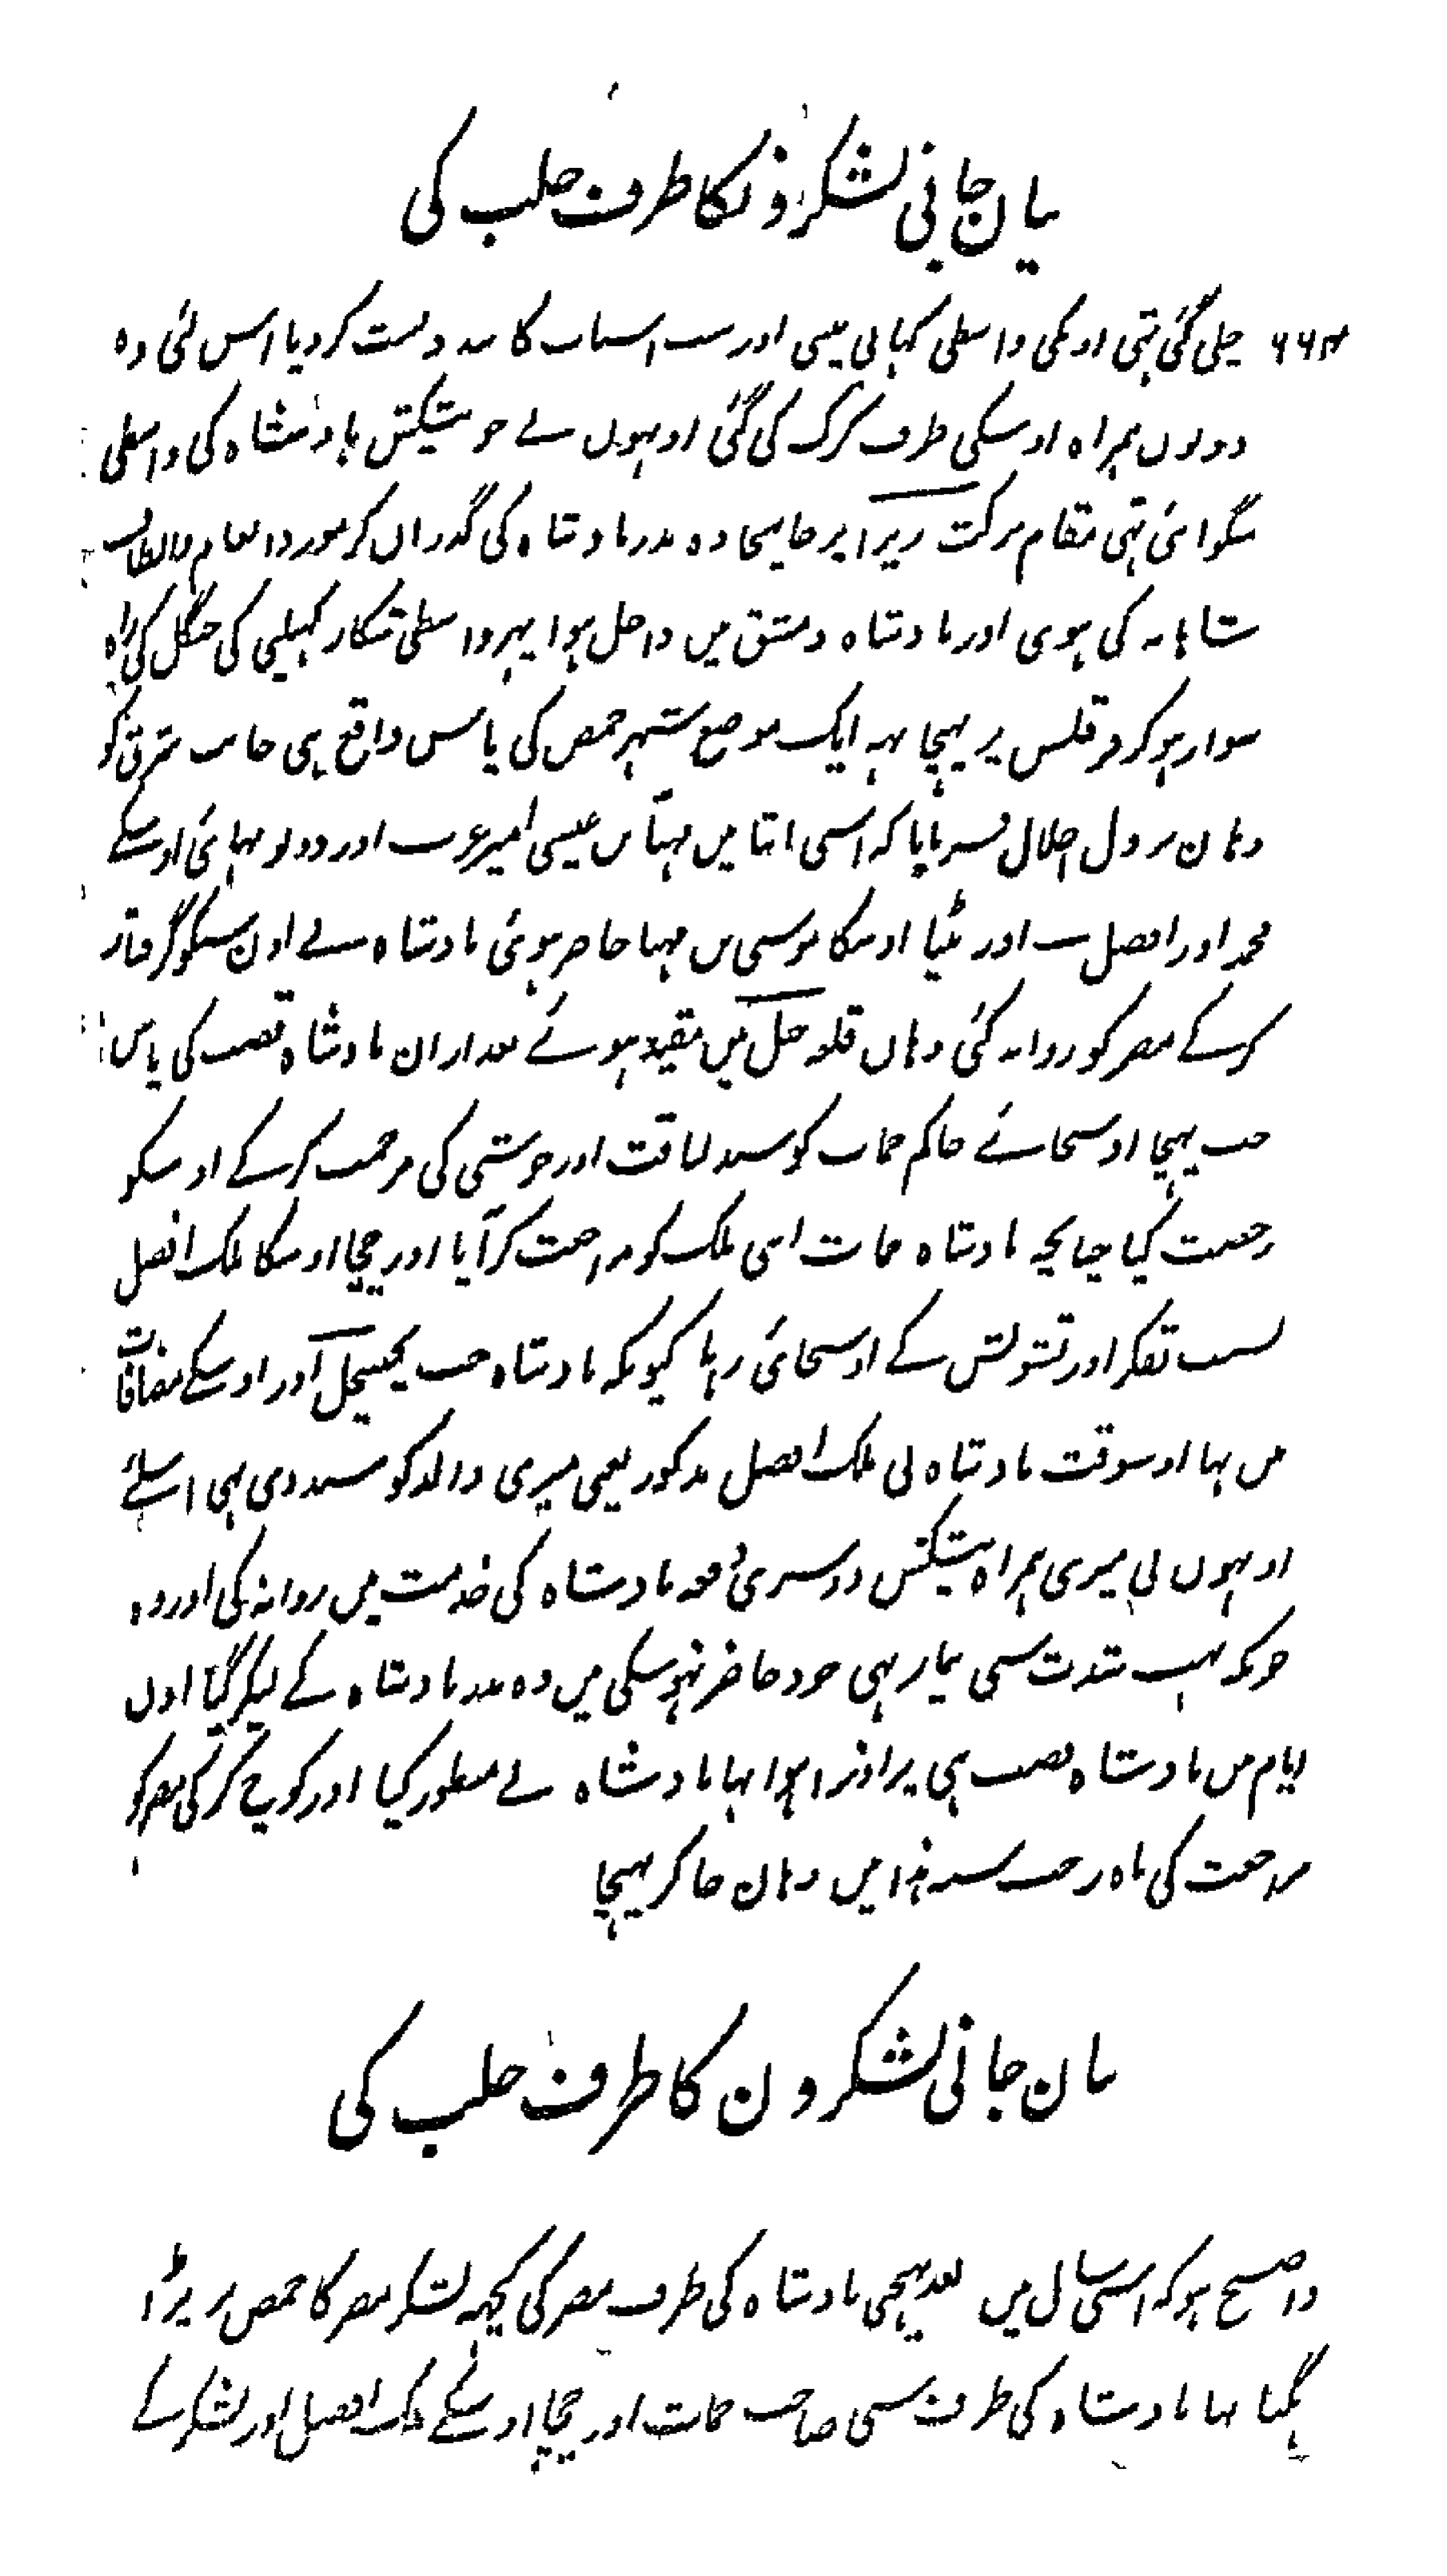 بیان جانی لشکرونکا طرف حلب کی
۶۶۴ چلی گئی تہی اونکی واسطی کہانی پینی اور سب اسباب کا بندوبست کردیا اس لئی وہ
دونوں ہمراہ اوسکی طرف کرک کی گئی اونہوں نے جو پیشکش بادشاہ کی واسطی
منگوائی تہی مقام برکت زیزا پر جا پہنچا وہ نذر بادشاہ کی گذران کر مورد انعام والطاف
شاہانہ کی ہوی اور بادشاہ دمشق میں داخل ہوا پہر واسطی شکار کہیلنی کی جنگل کی راہ
سوار ہوکر قرقلس پر پہنچا یہہ ایک موضع شہر حمص کی پاس واقع ہی جانب شرق کو
وہان نزول اجلال فرمایا کہ اسی اثنا میں مہنا بن عیسی امیر عرب اور دونو بہائی اوسکے
محمد اور افضل اور بیٹا اوسکا موسی بن مہنا حاضر ہوئی بادشاہ نے اون سبکو گرفتار
کرکے مصر کو روانہ کئی وہاں قلعہ جبل میں مقید ہوئے بعد ازان بادشاہ قصب کی پاس
جب پہنچا اوسجائے حاکم حمات کو سند لیاقت اور خوشی کی مرحمت کرکے اوسکو
رخصت کیا چنانچہ بادشاہ حمات اسی ملک کو مراجعت کر آیا اور چچا اوسکا ملک افضل
بسبب تفکر اور تشویش کے اوسجائی رہا کیونکہ بادشاہ جب یحسیحل اور اوسکے مضافات
میں تہا اوسوقت بادشاہ نی ملک افضل مذکور یعنی میری والد کو سند دی تہی اسلئے
اونہوں نی میری ہمراہ پیشکش دوسری دفعہ بادشاہ کی خدمت میں روانہ کی اور وہ
جونکہ بہت شدت سی بیمار تہی خود حاضر نہوسکی میں وہ نذر بادشاہ کے لیکر گیا اون
ایام میں بادشاہ قصب ہی پر اوترا ہوا تہا بادشاہ نے منظور کیا اور کوچ کرکی مصر کو
مراجعت کی ماہ رجب سنہ ہذا میں وہان جا کر پہنچا
بیان جانی لشکرون کا طرف حلب کی
واضح ہوکہ اسی سال میں بعد پہنچی بادشاہ کی طرف مصر کی کچہہ لشکر مصر کا حمص پر پڑا
بگیا تہا بادشاہ کی طرف سی صاحب حمات اور چچا اوسکے ملک افضل اور لشکر کے